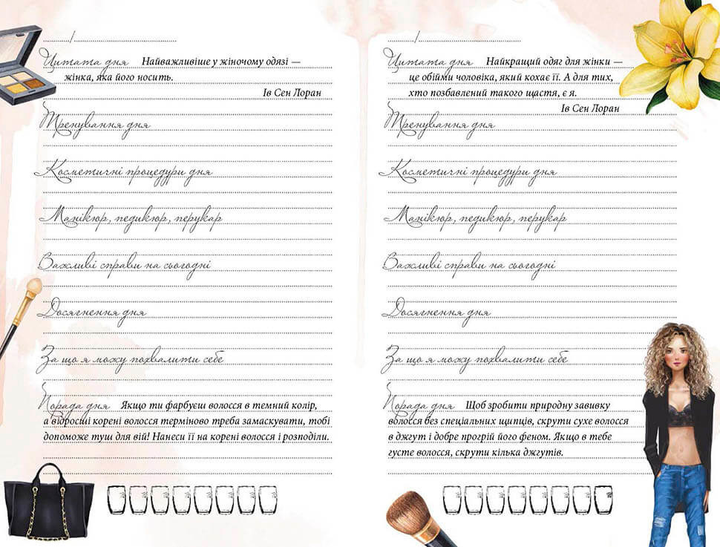 /
Цитата дня Найважливіше у жіночому одязі —
жінка, яка його носить.
Ів Сен Лоран
Тренування дня
Косметичні процедури дня
Манікюр, педикюр, перукар
Важливі справи на сьогодні
Досягнення дня
За що я можу похвалити себе
Порада дня Якщо ти фарбуєш волосся в темний колір,
а відрослі корені волосся терміново треба замаскувати, тобі
допоможе туш для вій! Нанеси її на корені волосся і розподіли.
/
Цитата дня Найкращий одяг для жінки —
це обійми чоловіка, який кохає її. А для тих,
хто позбавлений такого щастя, є я.
Ів Сен Лоран
Тренування дня
Косметичні процедури дня
Манікюр, педикюр, перукар
Важливі справи на сьогодні
Досягнення дня
За що я можу похвалити себе
Порада дня Щоб зробити природну завивку
волосся без спеціальних щипців, скрути сухе волосся
в джгут і добре прогрій його феном. Якщо в тебе
густе волосся, скрути кілька джгутів.